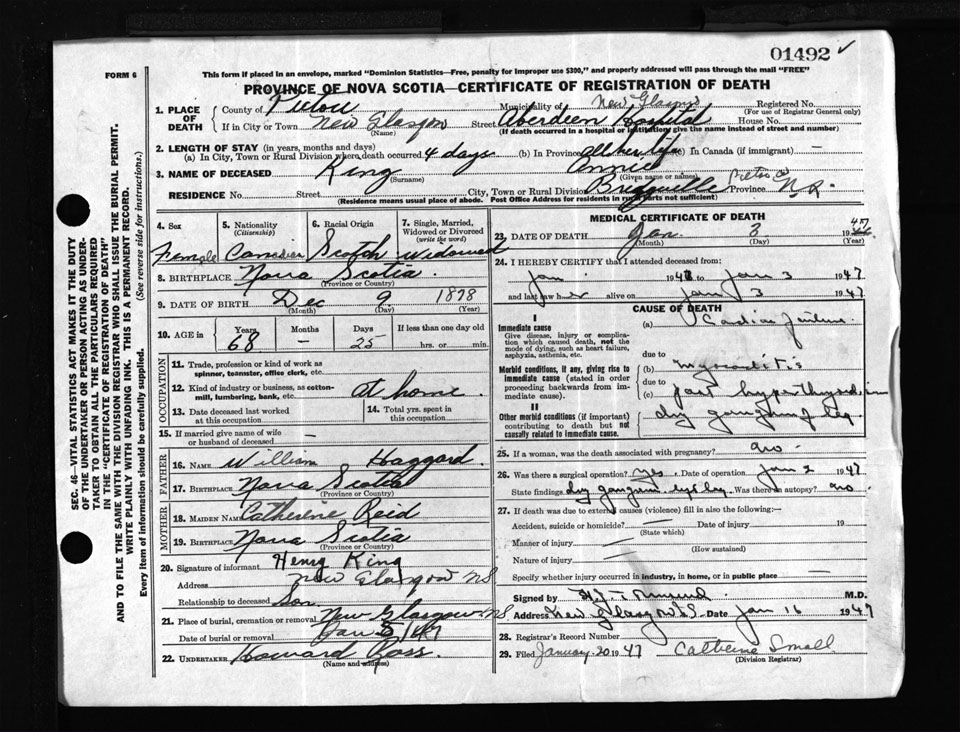 01492 ✓
FORM 6
This form if placed in an envelope, marked "Dominion Statistics—Free, penalty for improper use $300," and properly addressed will pass through the mail "FREE"
PROVINCE OF NOVA SCOTIA—CERTIFICATE OF REGISTRATION OF DEATH
1. PLACE OF DEATH County of Pictou Municipality of New Glasgow Registered No.
(For use of Registrar General only)
If in City or Town New Glasgow Street Aberdeen Hospital House No.
(Name) (If death occurred in a hospital or institution, give the name instead of street and number)
2. LENGTH OF STAY (in years, months and days)
(a) In City, Town or Rural Division where death occurred 4 days (b) In Province All her life (c) In Canada (if immigrant) —
3. NAME OF DECEASED King Annie
(Surname) (Given name or names)
RESIDENCE No. Street City, Town or Rural Division Pictou Co Province N.S.
(Residence means usual place of abode. Post Office Address for residents in rural parts not sufficient)
SEC. 46—VITAL STATISTICS ACT MAKES IT THE DUTY
OF THE UNDERTAKER OR PERSON ACTING AS UNDER-
TAKER TO OBTAIN ALL THE PARTICULARS REQUIRED
IN THE "CERTIFICATE OF REGISTRATION OF DEATH"
AND TO FILE THE SAME WITH THE DIVISION REGISTRAR WHO SHALL ISSUE THE BURIAL PERMIT.
WRITE PLAINLY WITH UNFADING INK. THIS IS A PERMANENT RECORD.
Every item of information should be carefully supplied. (See reverse side for instructions.)
4. Sex 5. Nationality (Citizenship) 6. Racial Origin 7. Single, Married, Widowed or Divorced (write the word)
Female Canadian Scotch Widowed
8. BIRTHPLACE Nova Scotia
(Province or Country)
9. DATE OF BIRTH Dec 9 1878
(Month) (Day) (Year)
10. AGE in Years Months Days If less than one day old
68 — 25 hrs. or min.
OCCUPATION
11. Trade, profession or kind of work as spinner, teamster, office clerk, etc.
12. Kind of industry or business, as cotton-mill, lumbering, bank, etc. at home
13. Date deceased last worked at this occupation
14. Total yrs. spent in this occupation
15. If married give name of wife or husband of deceased —
FATHER
16. NAME William Haggard
17. BIRTHPLACE Nova Scotia
(Province or Country)
MOTHER
18. MAIDEN NAME Catherine Reid
19. BIRTHPLACE Nova Scotia
(Province or Country)
20. Signature of informant Henry King
Address New Glasgow NS
Relationship to deceased Son
21. Place of burial, cremation or removal New Glasgow NS
Date of burial or removal Jan 5/47
22. UNDERTAKER Howard Ross
(Name and address)
MEDICAL CERTIFICATE OF DEATH
23. DATE OF DEATH Jan. 3 19 47
(Month) (Day) (Year)
24. I HEREBY CERTIFY that I attended deceased from:
Jan 1947 to Jan 3 1947
and last saw her alive on Jan 3 1947
CAUSE OF DEATH
I
Immediate cause
Give disease, injury or complication which caused death, not the mode of dying, such as heart failure, asphyxia, asthenia, etc.
(a) Cardiac failure
due to
Morbid conditions, if any, giving rise to immediate cause (stated in order proceeding backwards from immediate cause).
(b) myocarditis
due to
(c) past hyperthyroidism
II
Other morbid conditions (if important) contributing to death but not causally related to immediate cause.
dry gangrene leg
25. If a woman, was the death associated with pregnancy? no
26. Was there a surgical operation? yes Date of operation Jan 2 1947
State findings dry gangrene Was there an autopsy? no
27. If death was due to external causes (violence) fill in also the following:—
Accident, suicide or homicide? — Date of injury 19
(State which)
Manner of injury —
(How sustained)
Nature of injury —
Specify whether injury occurred in industry, in home, or in public place —
Signed by M.D.
Address New Glasgow N.S. Date Jan 16 1947
28. Registrar's Record Number
29. Filed January 20 1947 Catherine Small
(Division Registrar)